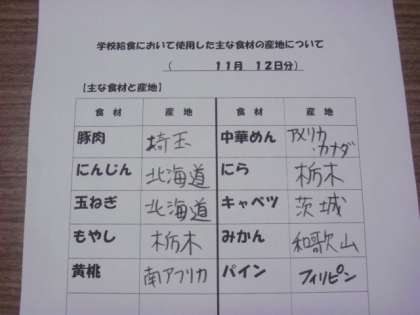 学校給食において使用した主な食材の産地について
( 11月 12日分)
【主な食材と産地】
食 材 産 地 食 材 産 地
豚肉 埼玉 中華めん アメリカ・カナダ
にんじん 北海道 にら 栃木
玉ねぎ 北海道 キャベツ 茨城
もやし 栃木 みかん 和歌山
黄桃 南アフリカ パイン フィリピン